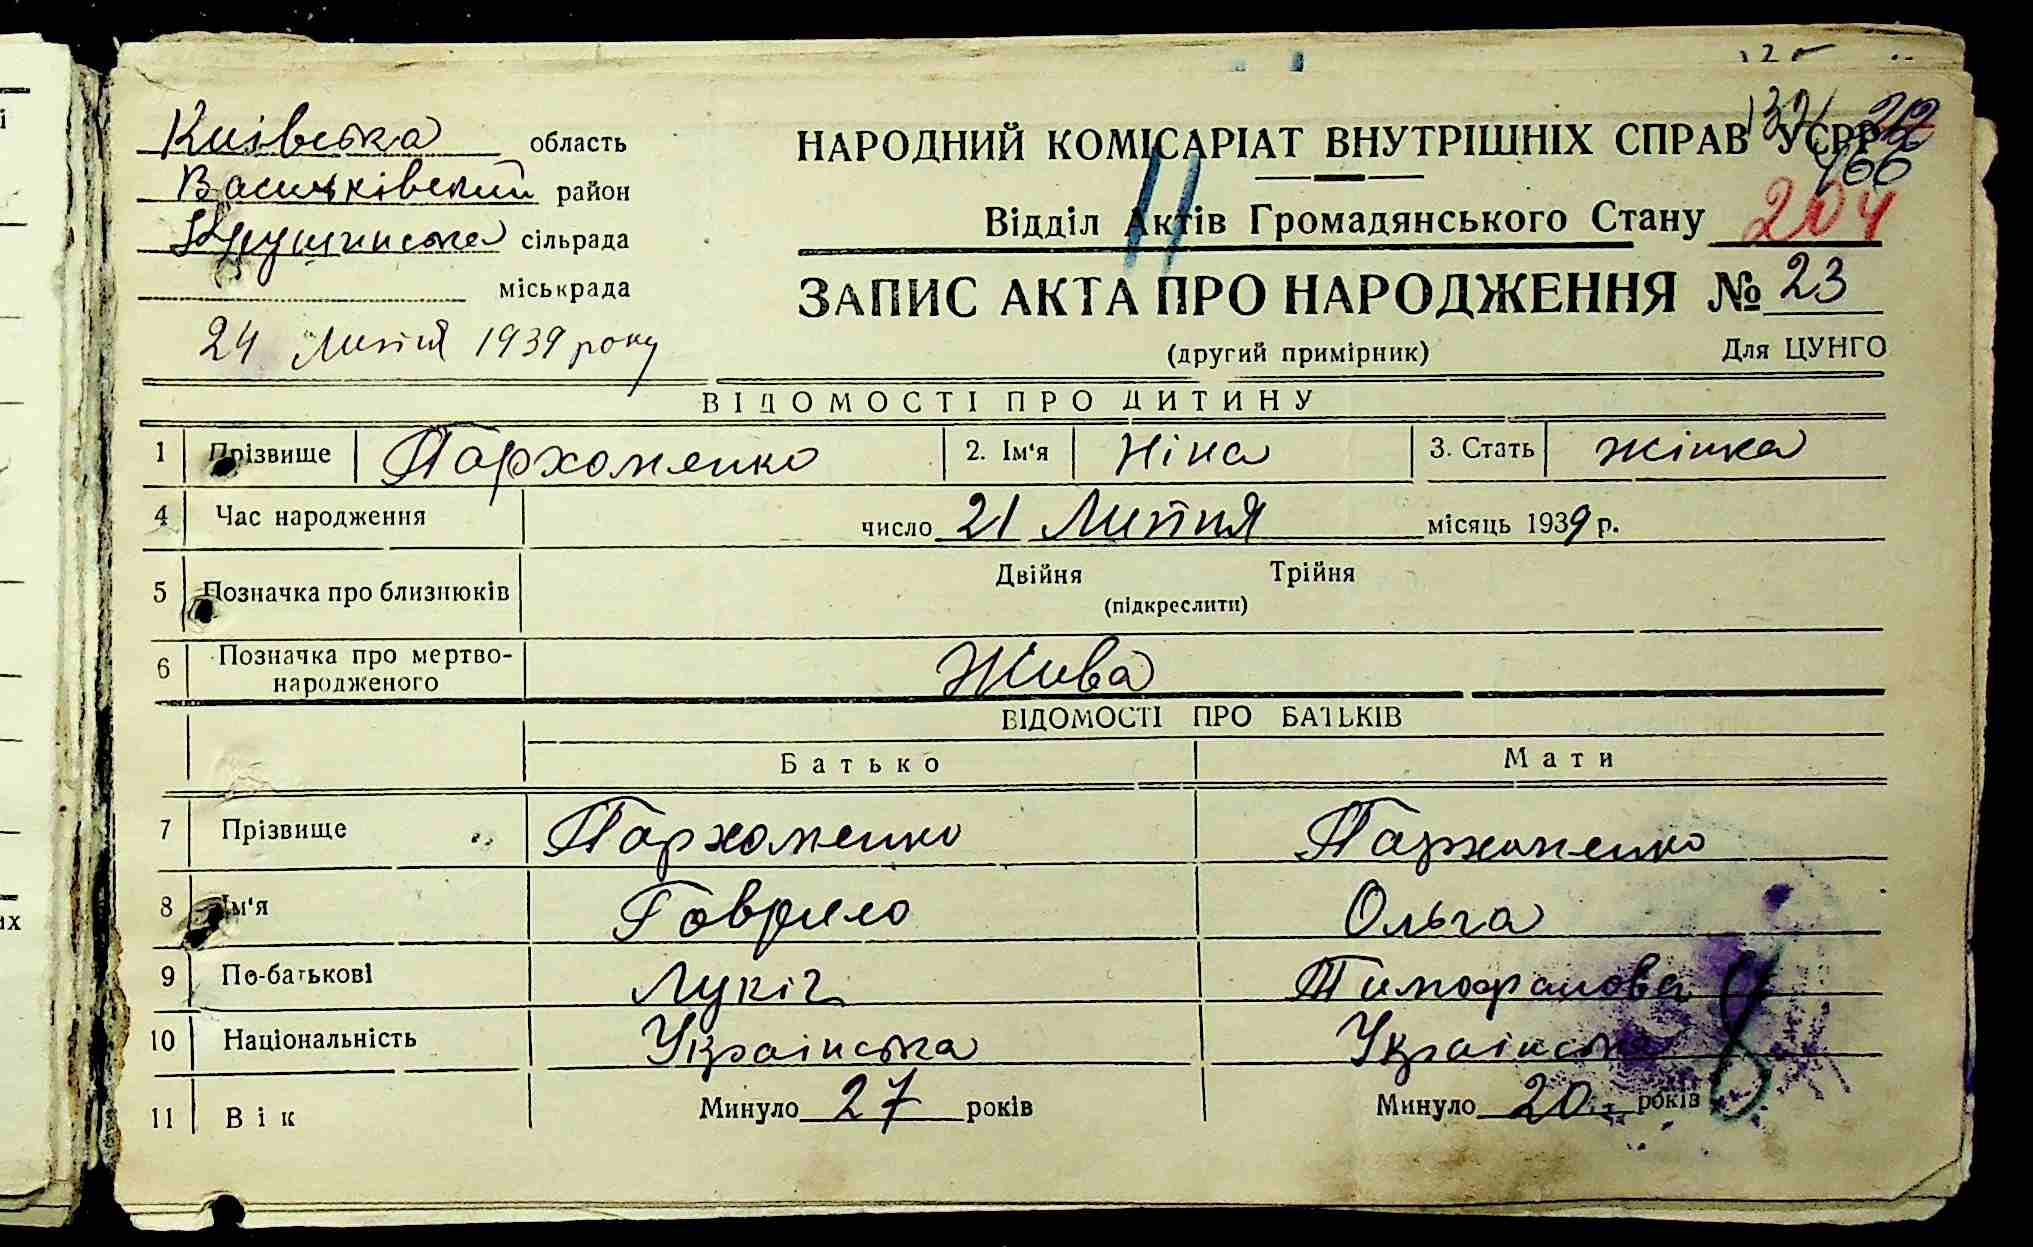 Київська область
Васильківський район
Крушинська сільрада
міськрада
24 Липня 1939 року
НАРОДНИЙ КОМІСАРІАТ ВНУТРІШНІХ СПРАВ УСРР
166
11
Відділ Актів Громадянського Стану 204
ЗАПИС АКТА ПРО НАРОДЖЕННЯ № 23
(другий примірник) Для ЦУНГО
ВІДОМОСТІ ПРО ДИТИНУ
1 Прізвище Пархоменко 2. Ім'я Ніна 3. Стать жінка
4 Час народження число 21 Липня місяць 1939 р.
5 Позначка про близнюків Двійня Трійня
(підкреслити)
6 Позначка про мертво-
народженого Жива
ВІДОМОСТІ ПРО БАТЬКІВ
Батько Мати
7 Прізвище Пархоменко Пархоменко
8 Ім'я Гаврило Ольга
9 По-батькові Лукіч Тимофанова
10 Національність Українська Українська
11 Вік Минуло 27 років Минуло 20 років
их